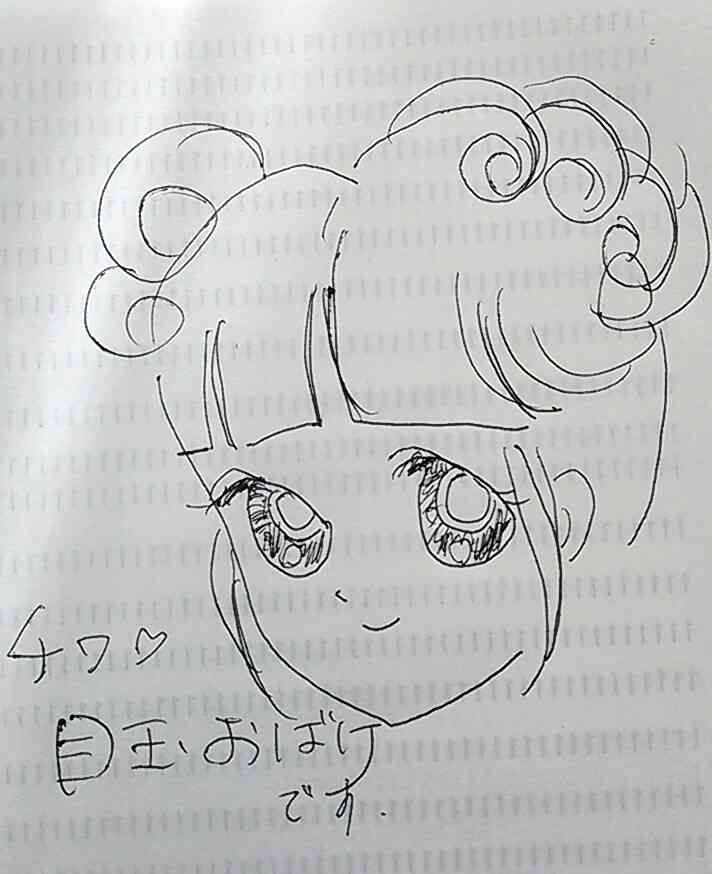 チワ♡
目玉おばけ
です.